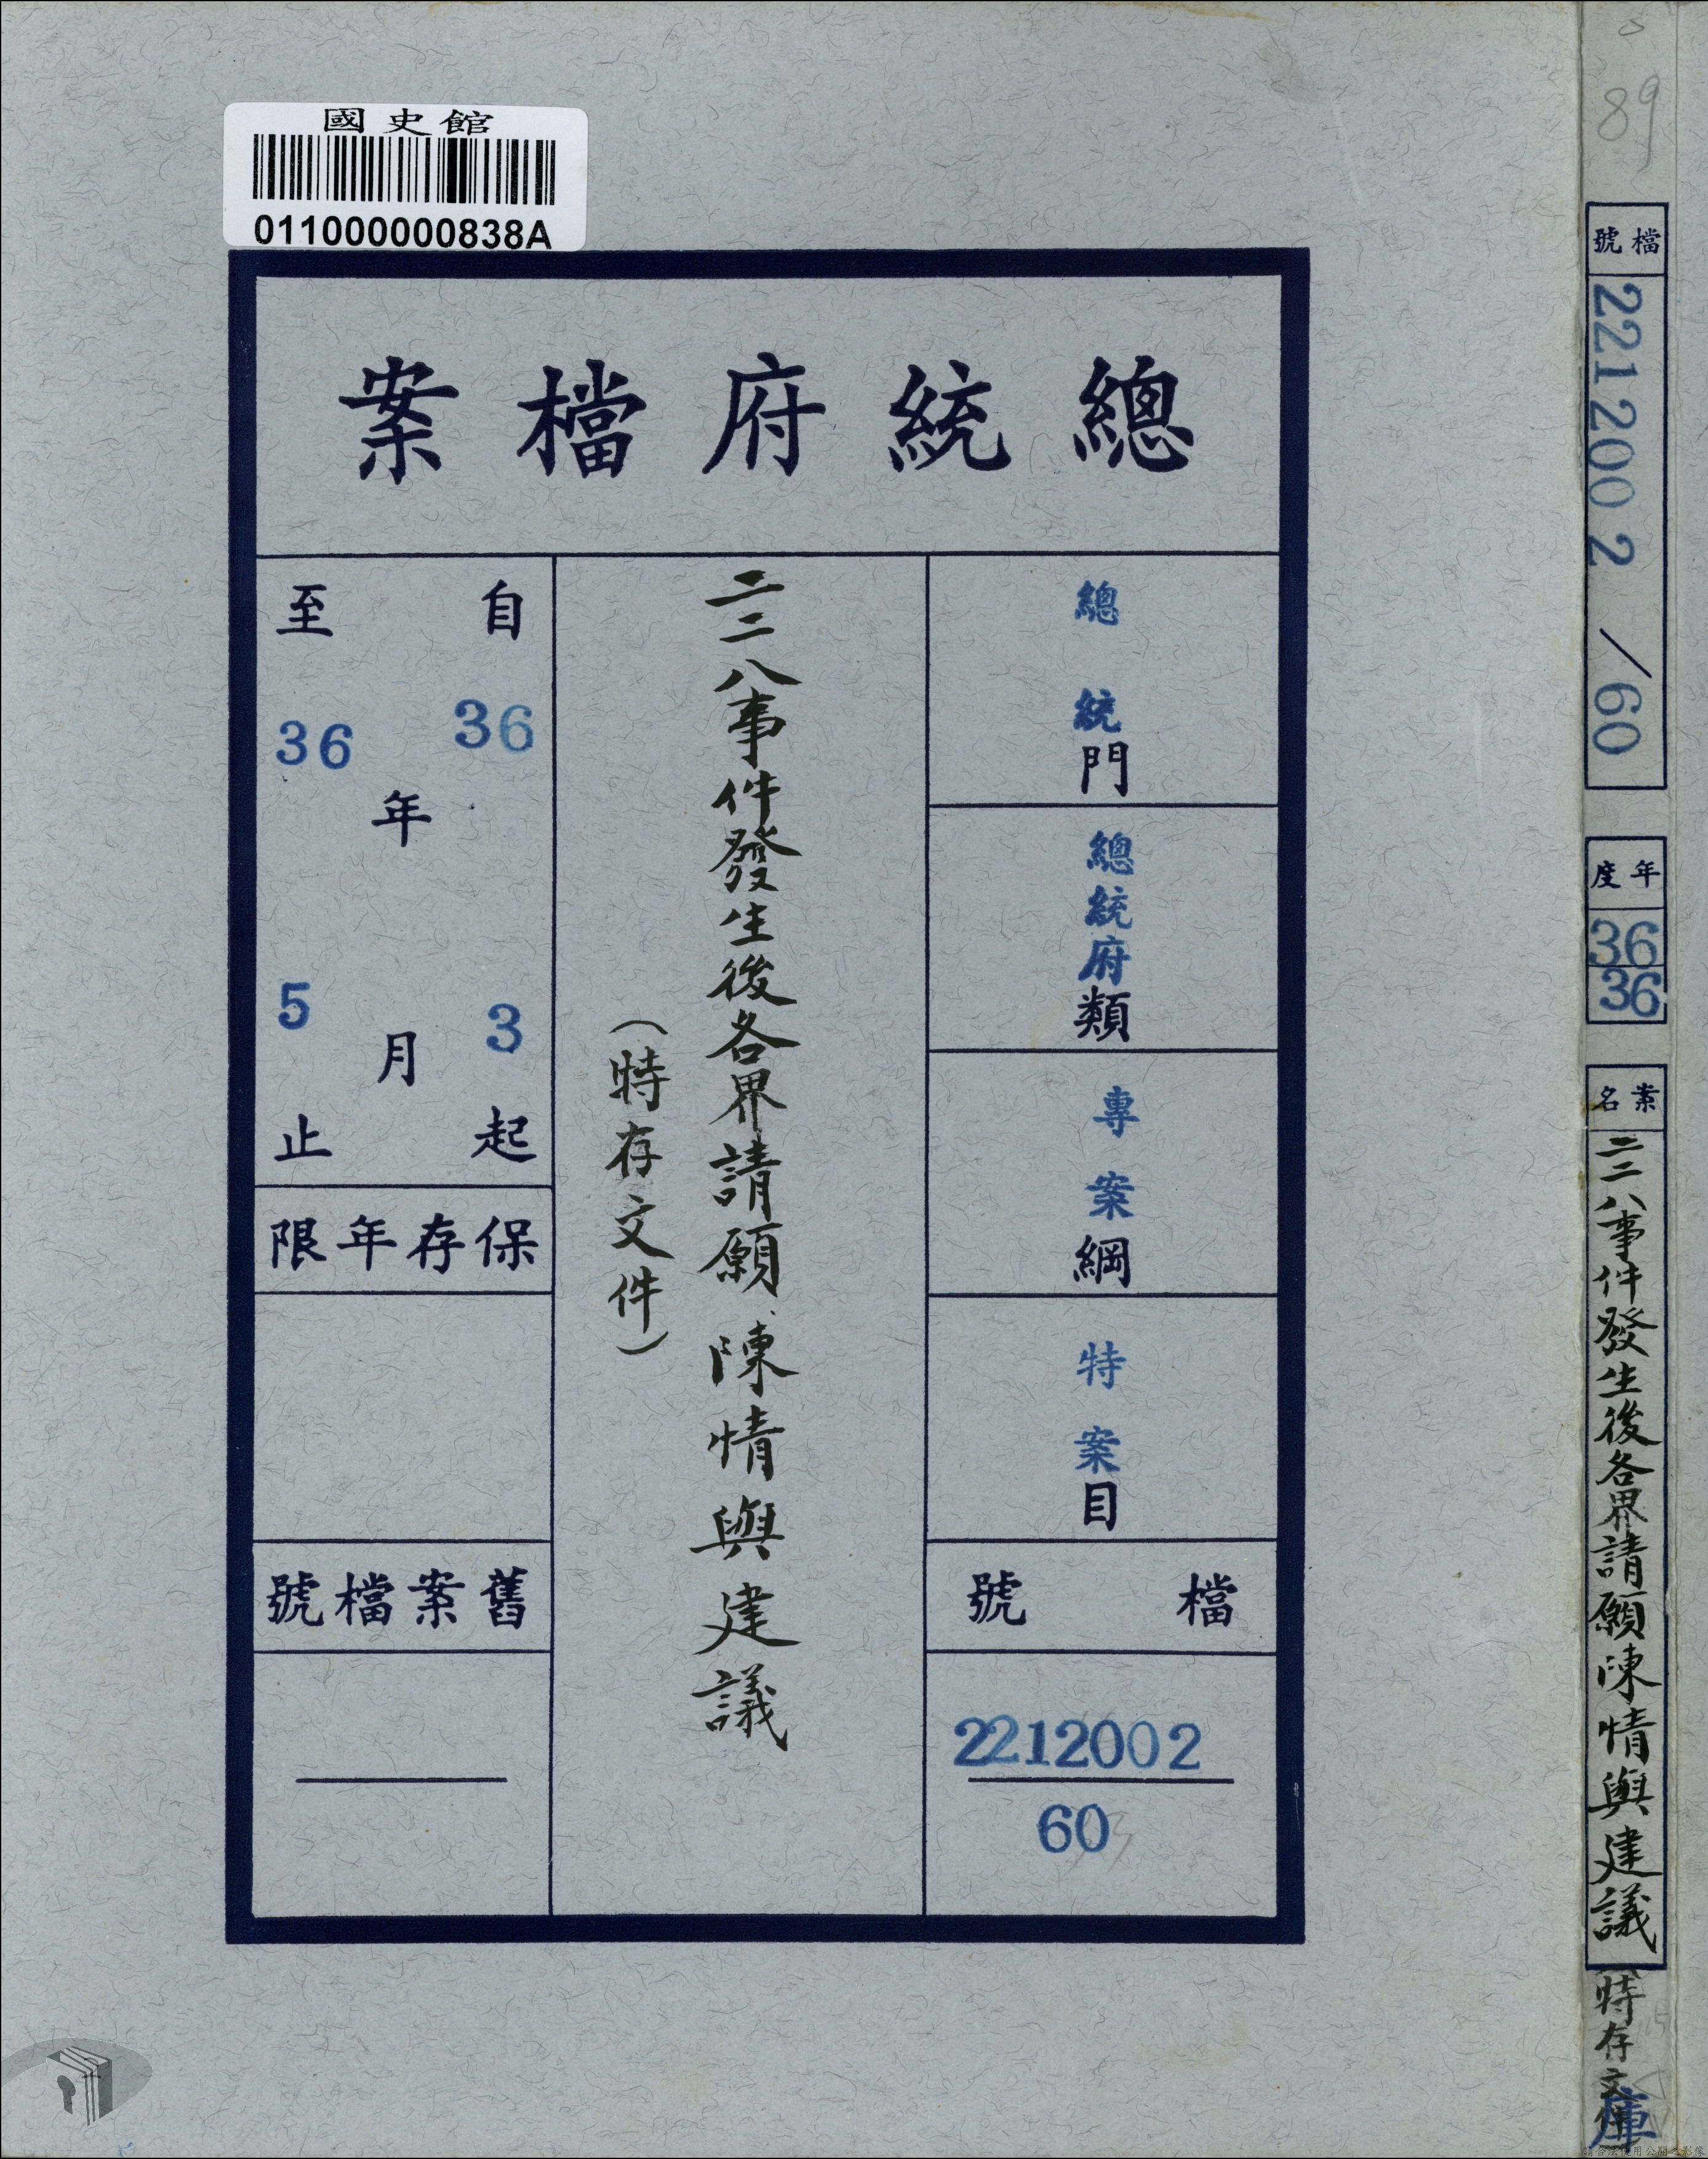 國史館
011000000838A
總統府檔案
總統門
總統府類
專案綱
特案目
檔號
2212002
60
二二八事件發生後各界請願、陳情與建議
（特存文件）
自36年3月起
至36年5月止
保存年限
舊案檔號
89
檔號
2212002/60
年度
36
36
案名
二二八事件發生後各界請願陳情與建議(特存文件
庫